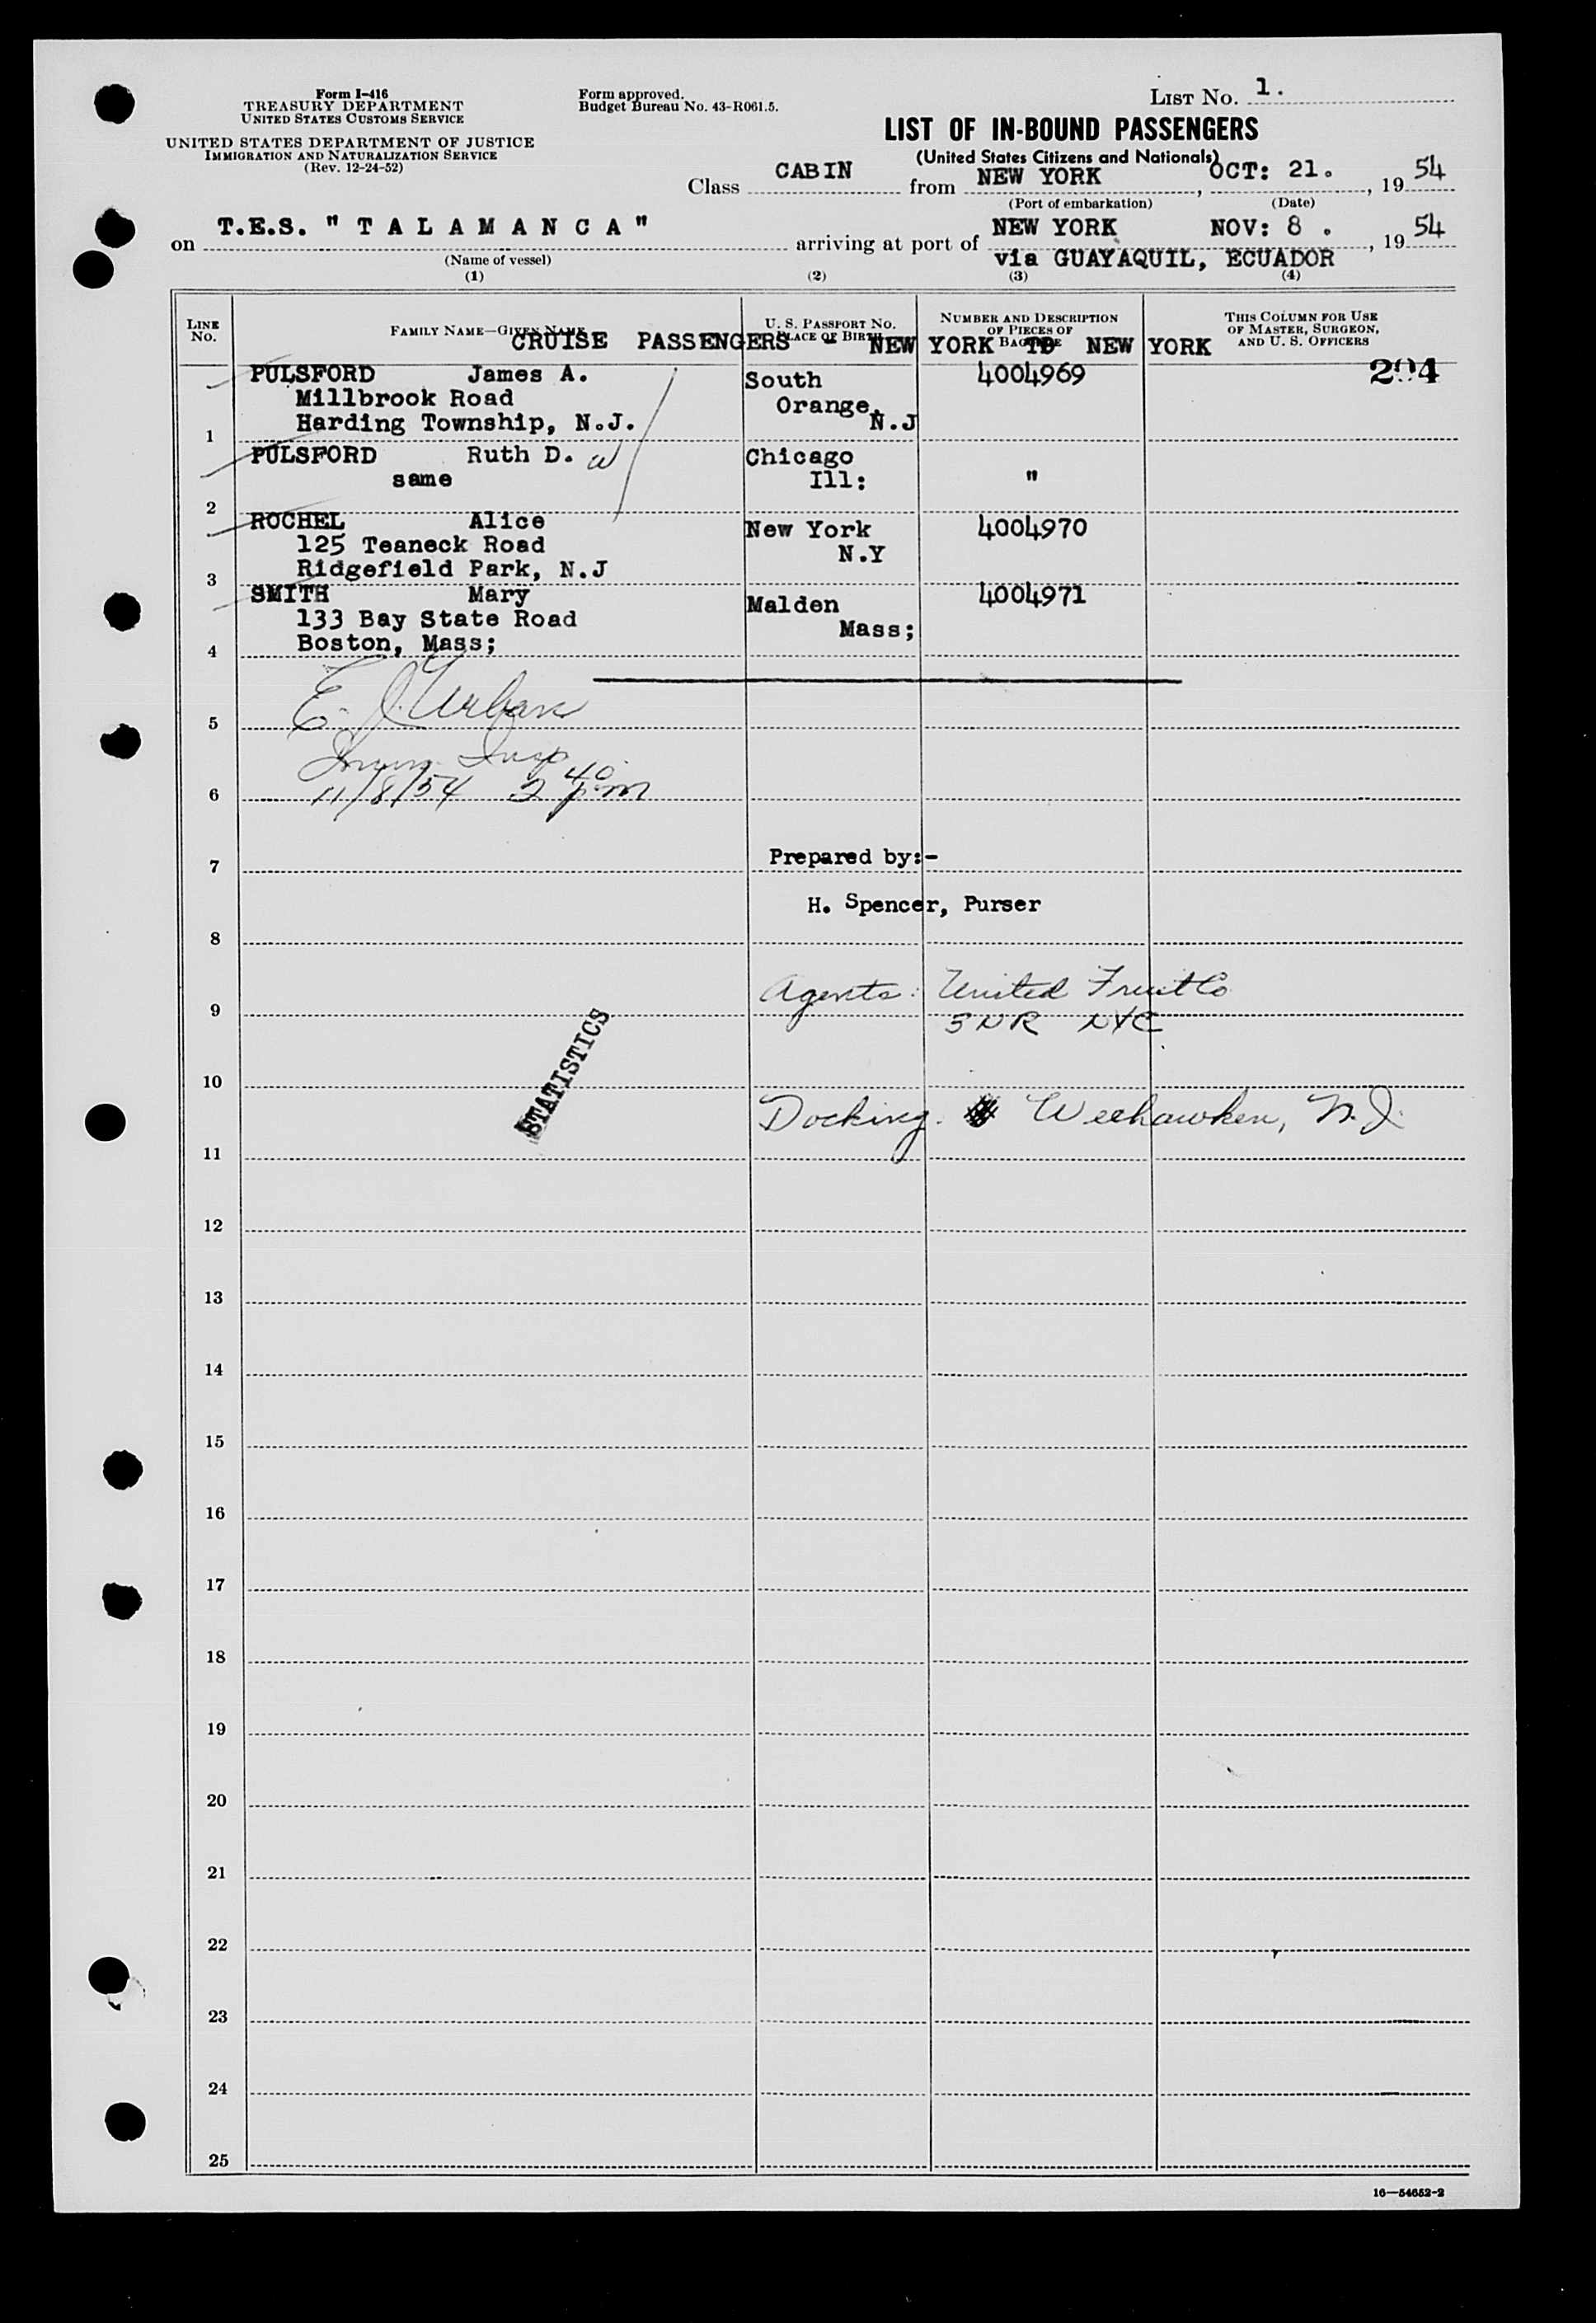 Form I-416
TREASURY DEPARTMENT
UNITED STATES CUSTOMS SERVICE
UNITED STATES DEPARTMENT OF JUSTICE
IMMIGRATION AND NATURALIZATION SERVICE
(Rev. 12-24-52)
Form approved.
Budget Bureau No. 43-R061.5.
LIST NO. 1.
LIST OF IN-BOUND PASSENGERS
(United States Citizens and Nationals)
Class CABIN from NEW YORK, OCT: 21., 1954
(Port of embarkation) (Date)
on T.E.S. " T A L A M A N C A " arriving at port of NEW YORK NOV: 8 ., 1954
(Name of vessel) via GUAYAQUIL, ECUADOR
(1) (2) (3) (4)
LINE NO.
FAMILY NAME—GIVEN NAME
U. S. PASSPORT NO.
PLACE OF BIRTH
NUMBER AND DESCRIPTION
OF PIECES OF
BAGGAGE
THIS COLUMN FOR USE
OF MASTER, SURGEON,
AND U. S. OFFICERS
CRUISE PASSENGERS - NEW YORK TO NEW YORK
PULSFORD James A. South 4004969
Millbrook Road Orange,
1 Harding Township, N.J. N.J
PULSFORD Ruth D. w Chicago
same Ill: "
2
ROCHEL Alice New York 4004970
125 Teaneck Road N.Y
3 Ridgefield Park, N.J
SMITH Mary Malden 4004971
133 Bay State Road Mass;
4 Boston, Mass;
E. J. Urban
5
Imm. Insp
6 11/8/54 2 40 pm
7 Prepared by:-
H. Spencer, Purser
8
Agents: United Fruit Co
9 3 NR NYC
10
STATISTICS
Docking. Weehawken, N.J.
11
12
13
14
15
16
17
18
19
20
21
22
23
24
25
16—54652-2